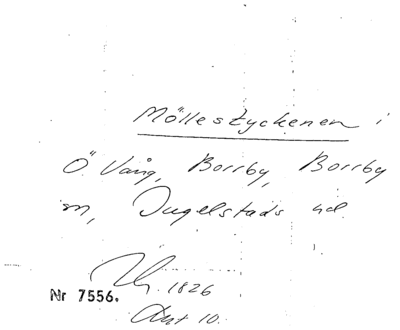 Möllestyckenen i
Ö. Vång, Borrby, Borrby
sn, Ingelstads hd.
1826
Nr 7556.
10.